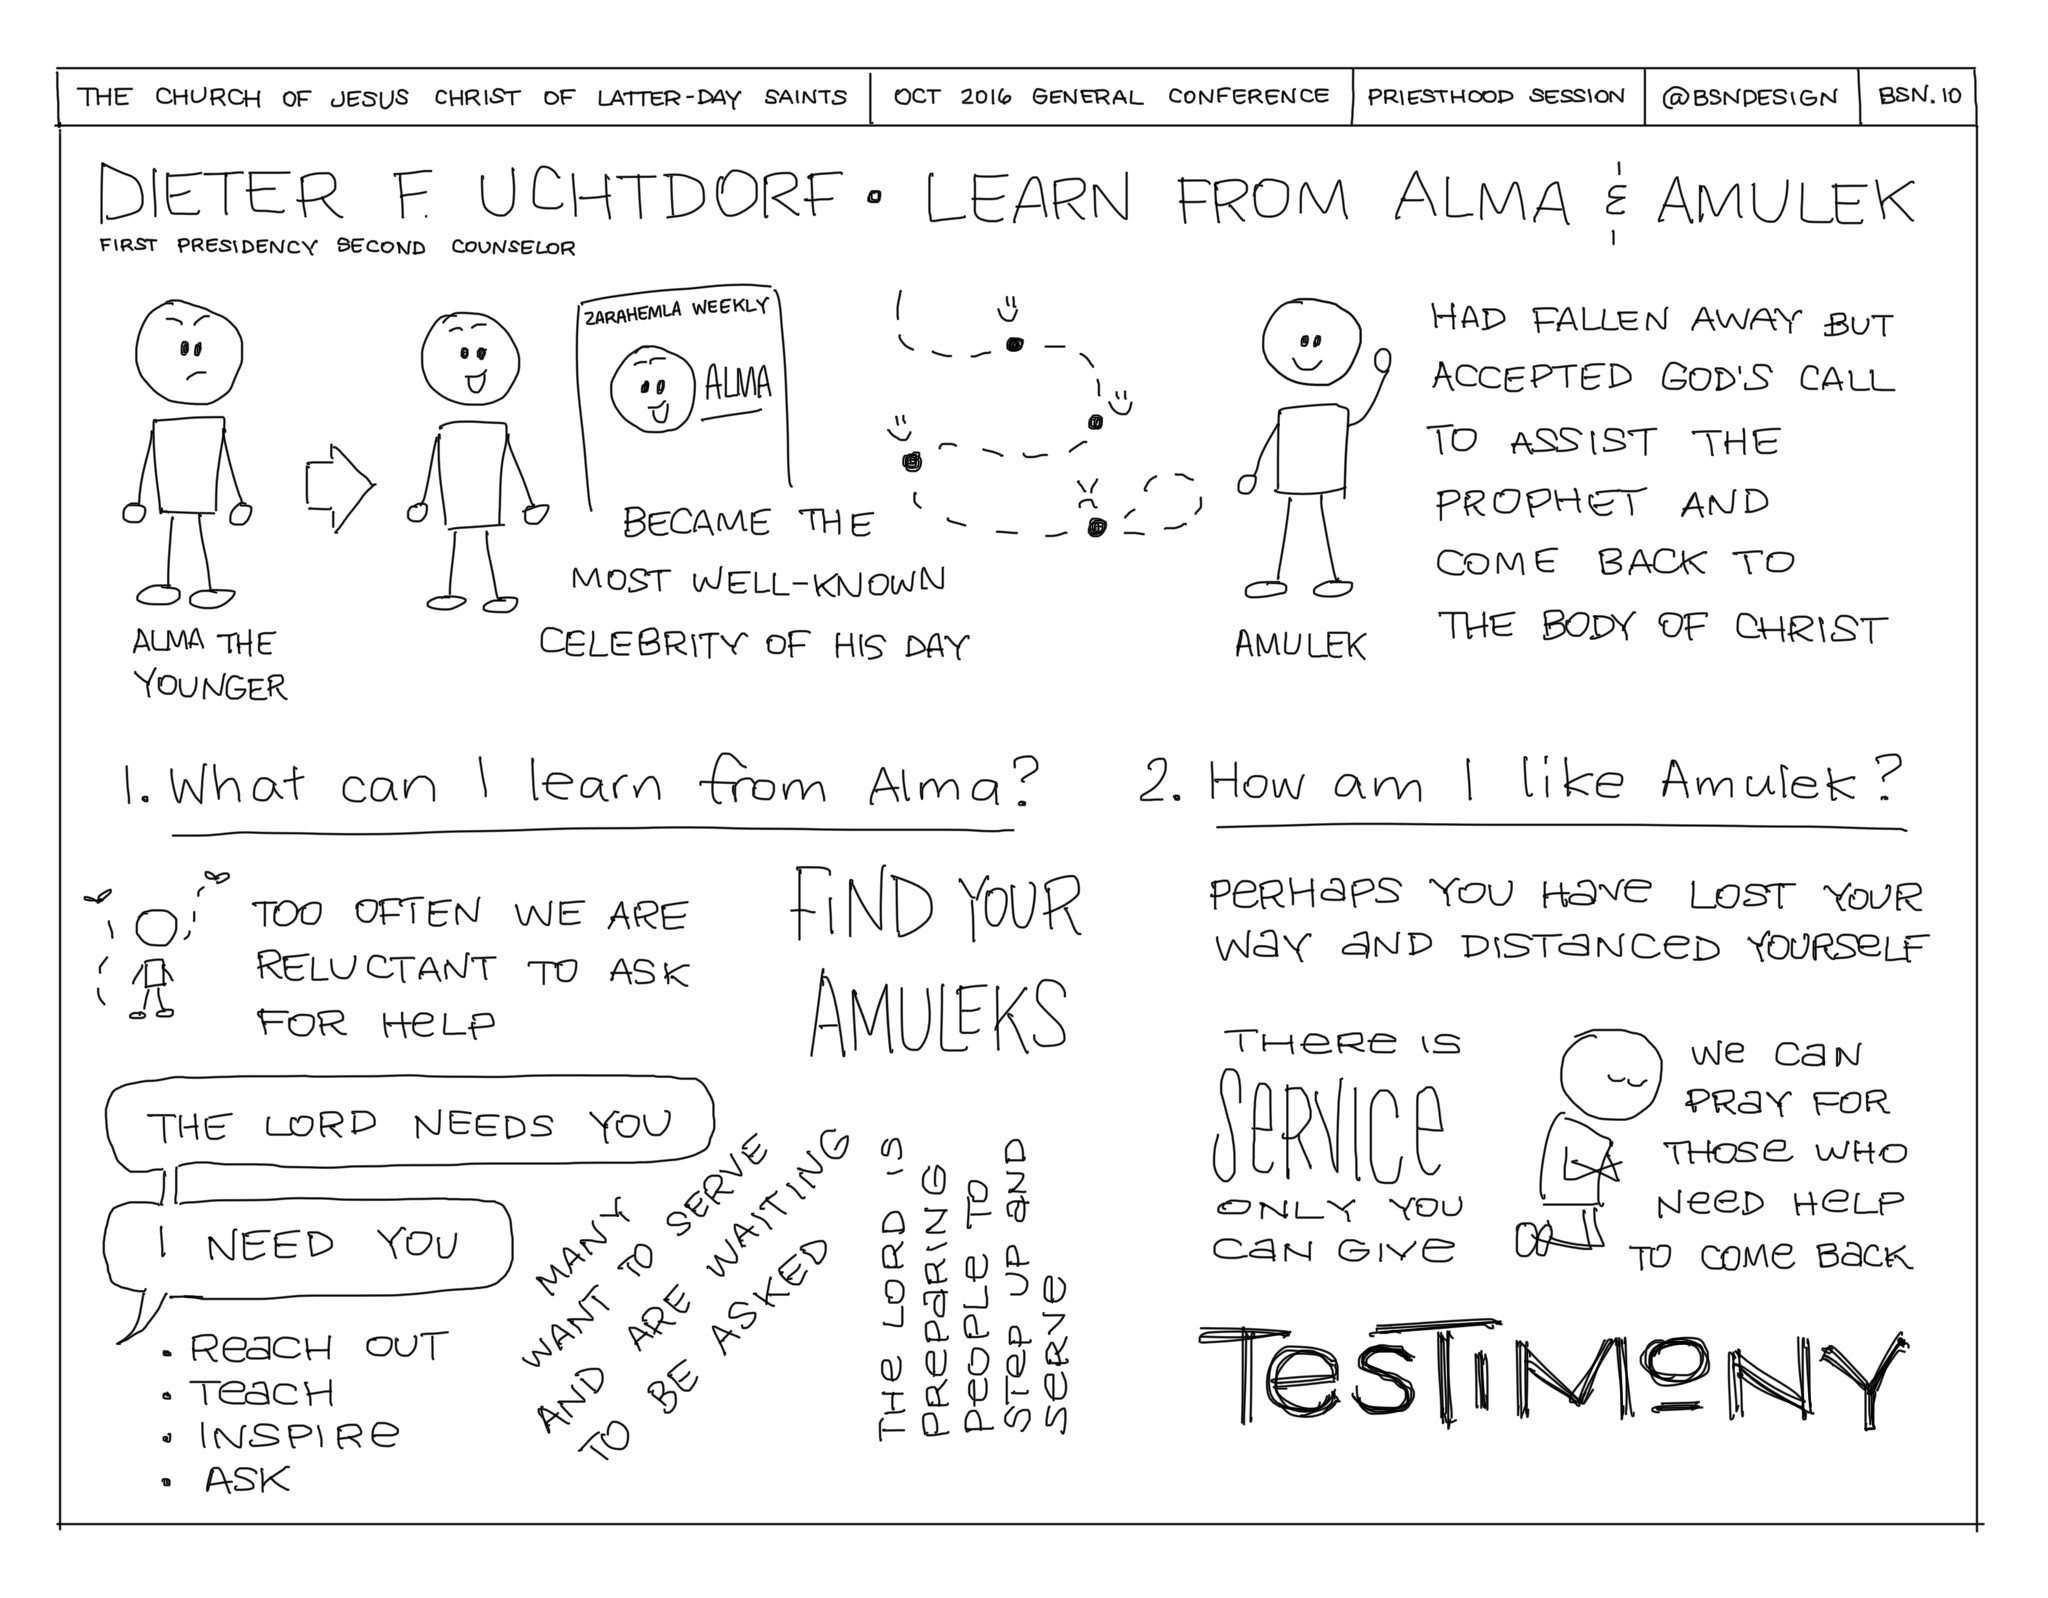 THE CHURCH OF JESUS CHRIST OF LATTER-DAY SAINTS
OCT 2016 GENERAL CONFERENCE
PRIESTHOOD SESSION
@BSNDESIGN
BSN.10
DIETER F. UCHTDORF • LEARN FROM ALMA & AMULEK
FIRST PRESIDENCY SECOND COUNSELOR
ALMA THE
YOUNGER
ZARAHEMLA WEEKLY
ALMA
BECAME THE
MOST WELL-KNOWN
CELEBRITY OF HIS DAY
AMULEK
HAD FALLEN AWAY BUT
ACCEPTED GOD'S CALL
TO ASSIST THE
PROPHET AND
COME BACK TO
THE BODY OF CHRIST
1. What can I learn from Alma?
TOO OFTEN WE ARE
RELUCTANT TO ASK
FOR HELP
FIND YOUR
AMULEKS
THE LORD NEEDS YOU
I NEED YOU
• REACH OUT
• TEACH
• INSPIRE
• ASK
MANY
WANT TO SERVE
AND ARE WAITING
TO BE ASKED
THE LORD IS
PREPARING
PEOPLE TO
STEP UP AND
SERVE
2. How am I like Amulek?
PERHAPS YOU HAVE LOST YOUR
WAY AND DISTANCED YOURSELF
THERE IS
SERVICE
ONLY YOU
CAN GIVE
WE CAN
PRAY FOR
THOSE WHO
NEED HELP
TO COME BACK
TESTIMONY